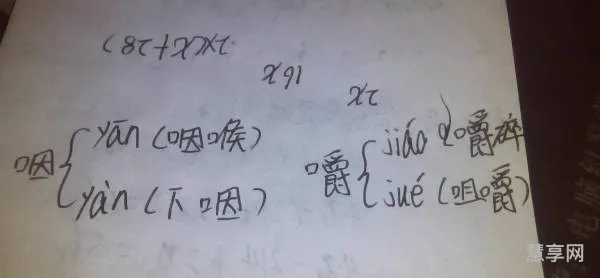 2x(x+28)
16x
2x
咽 yān (咽喉)
yàn (下咽)
嚼 jiáo (嚼碎
jué (咀嚼)
慧享网